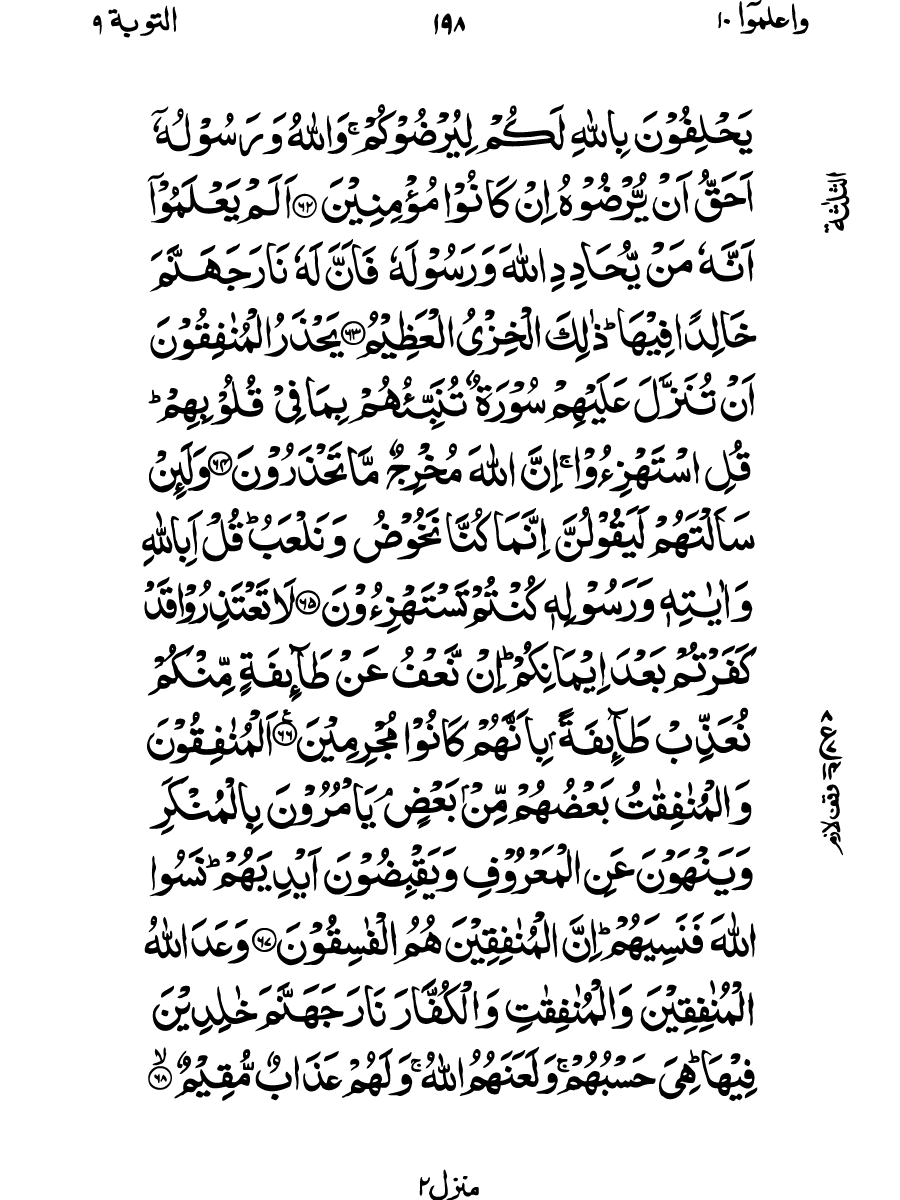 واعلموٓا ١٠
١٩٨
التوبة ٩
يَحْلِفُوْنَ بِاللّٰهِ لَكُمْ لِيُرْضُوْكُمْ ۚ وَاللّٰهُ وَرَسُوْلُهٗٓ
اَحَقُّ اَنْ يُّرْضُوْهُ اِنْ كَانُوْا مُؤْمِنِيْنَ ﴿۶۲﴾ اَلَمْ يَعْلَمُوْٓا
اَنَّهٗ مَنْ يُّحَادِدِ اللّٰهَ وَرَسُوْلَهٗ فَاَنَّ لَهٗ نَارَ جَهَنَّمَ
خَالِدًا فِيْهَا ؕ ذٰلِكَ الْخِزْيُ الْعَظِيْمُ ﴿۶۳﴾ يَحْذَرُ الْمُنٰفِقُوْنَ
اَنْ تُنَزَّلَ عَلَيْهِمْ سُوْرَةٌ تُنَبِّئُهُمْ بِمَا فِيْ قُلُوْبِهِمْ ؕ
قُلِ اسْتَهْزِءُوْا ۚ اِنَّ اللّٰهَ مُخْرِجٌ مَّا تَحْذَرُوْنَ ﴿۶۴﴾ وَلَئِنْ
سَاَلْتَهُمْ لَيَقُوْلُنَّ اِنَّمَا كُنَّا نَخُوْضُ وَنَلْعَبُ ؕ قُلْ اَبِاللّٰهِ
وَاٰيٰتِهٖ وَرَسُوْلِهٖ كُنْتُمْ تَسْتَهْزِءُوْنَ ﴿۶۵﴾ لَا تَعْتَذِرُوْا قَدْ
كَفَرْتُمْ بَعْدَ اِيْمَانِكُمْ ؕ اِنْ نَّعْفُ عَنْ طَآئِفَةٍ مِّنْكُمْ
نُعَذِّبْ طَآئِفَةًۢ بِاَنَّهُمْ كَانُوْا مُجْرِمِيْنَ ﴿۶۶﴾ اَلْمُنٰفِقُوْنَ
وَالْمُنٰفِقٰتُ بَعْضُهُمْ مِّنْۢ بَعْضٍ ۘ يَاْمُرُوْنَ بِالْمُنْكَرِ
وَيَنْهَوْنَ عَنِ الْمَعْرُوْفِ وَيَقْبِضُوْنَ اَيْدِيَهُمْ ؕ نَسُوا
اللّٰهَ فَنَسِيَهُمْ ؕ اِنَّ الْمُنٰفِقِيْنَ هُمُ الْفٰسِقُوْنَ ﴿۶۷﴾ وَعَدَ اللّٰهُ
الْمُنٰفِقِيْنَ وَالْمُنٰفِقٰتِ وَالْكُفَّارَ نَارَ جَهَنَّمَ خٰلِدِيْنَ
فِيْهَا ؕ هِيَ حَسْبُهُمْ ۚ وَلَعَنَهُمُ اللّٰهُ ۚ وَلَهُمْ عَذَابٌ مُّقِيْمٌ ۙ﴿۶۸﴾
الثلٰثة
وقف لازم
منزل ٢